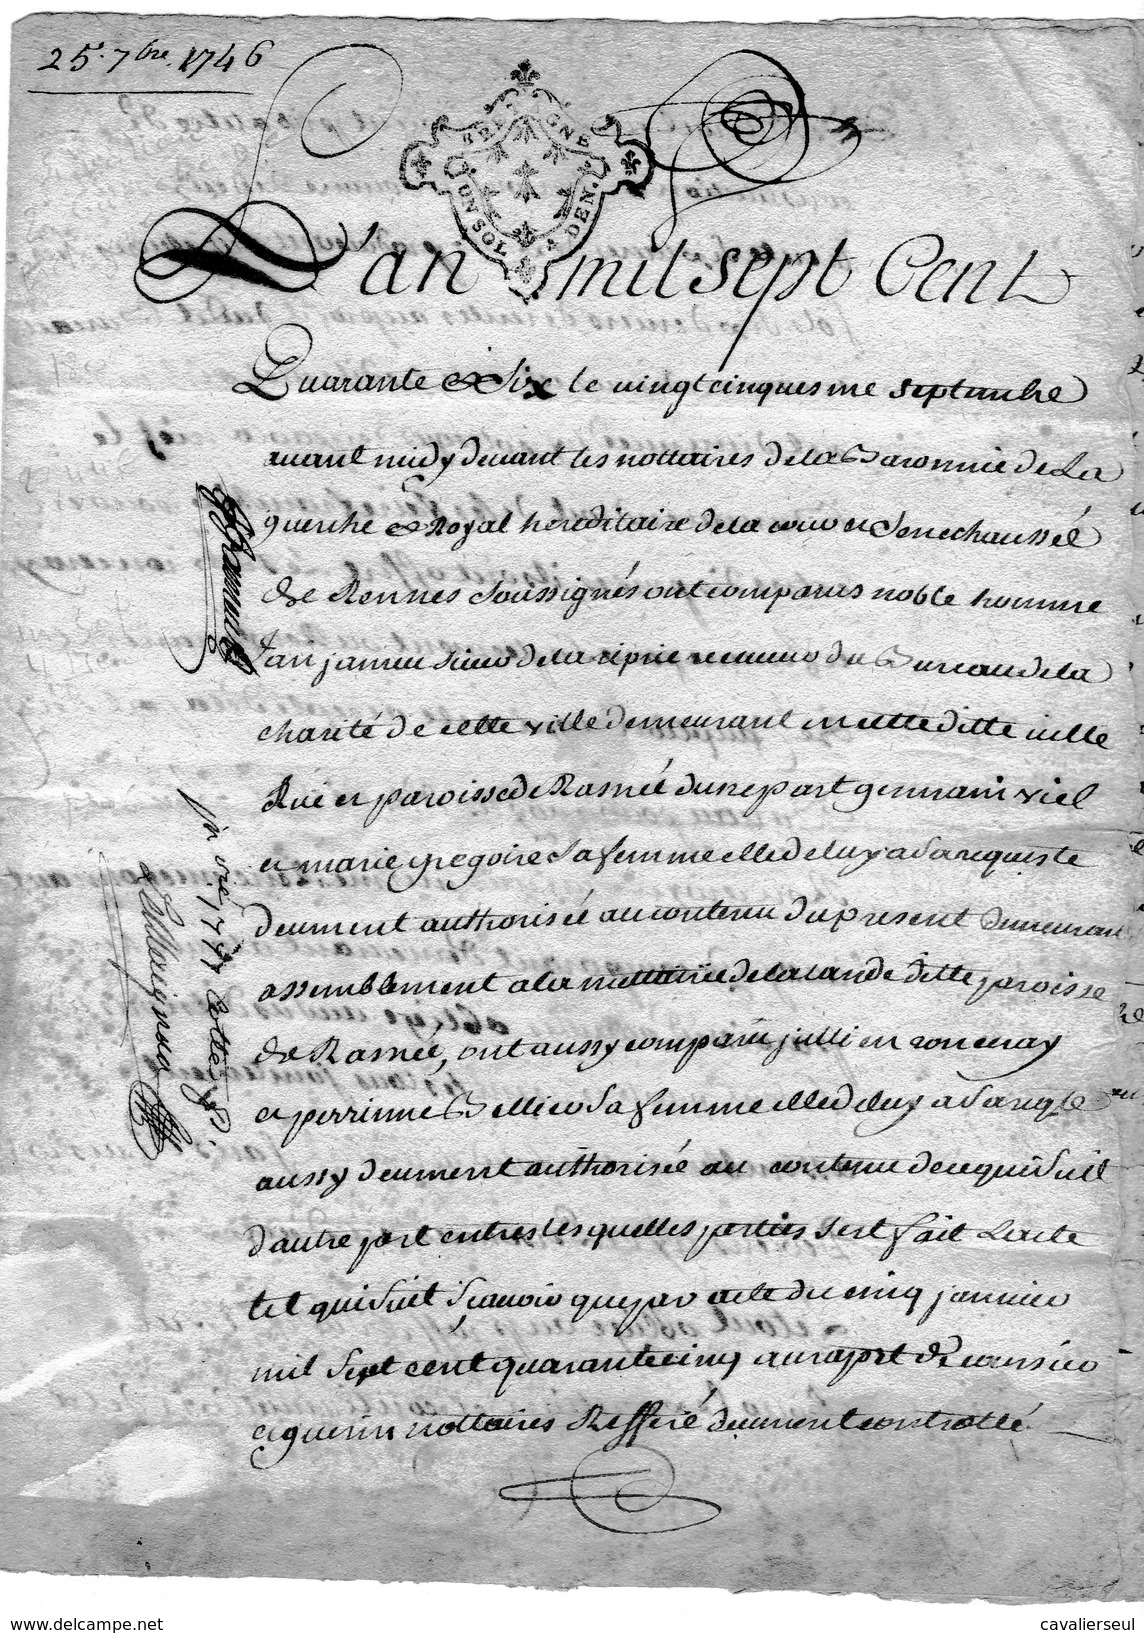 25. 7bre. 1746
BRETAGNE
UN SOL 4 DEN.
L'an mil sept Cent
Quarante & Six le vingt cinquesme septembre
avant midy devant les nottaires de la Baronnie de La
guerche & Royal hereditaire de la cour et Senechaussée
de Rennes Soussignés ont comparus noble homme
Jan janvier Sieur de la receveur du Bureau de la
charité de cette ville demeurant en cette ditte ville
Rüe et paroisse de Rasnée d'une part germain viel
et marie gregoire Sa femme elle de luy a Sa requeste
deument authorisée au contenu du present demeurans
assemblement a la mettairie de la lande ditte paroisse
de Rasnée, ont aussy comparu jullien ronceray
et perrinne Bellier Sa femme elle de luy a Sa reqte
aussy deument authorisée au contenu de ce qui Suit
d'autre part entres lesquelles parties s'est fait L'acte
tel qui Suit Scavoir que par acte du cinq janvier
mil Sept cent quarante cinq au raport de
et guerin nottaires Refferé deument controllé
delcampe.net
cavalierseul